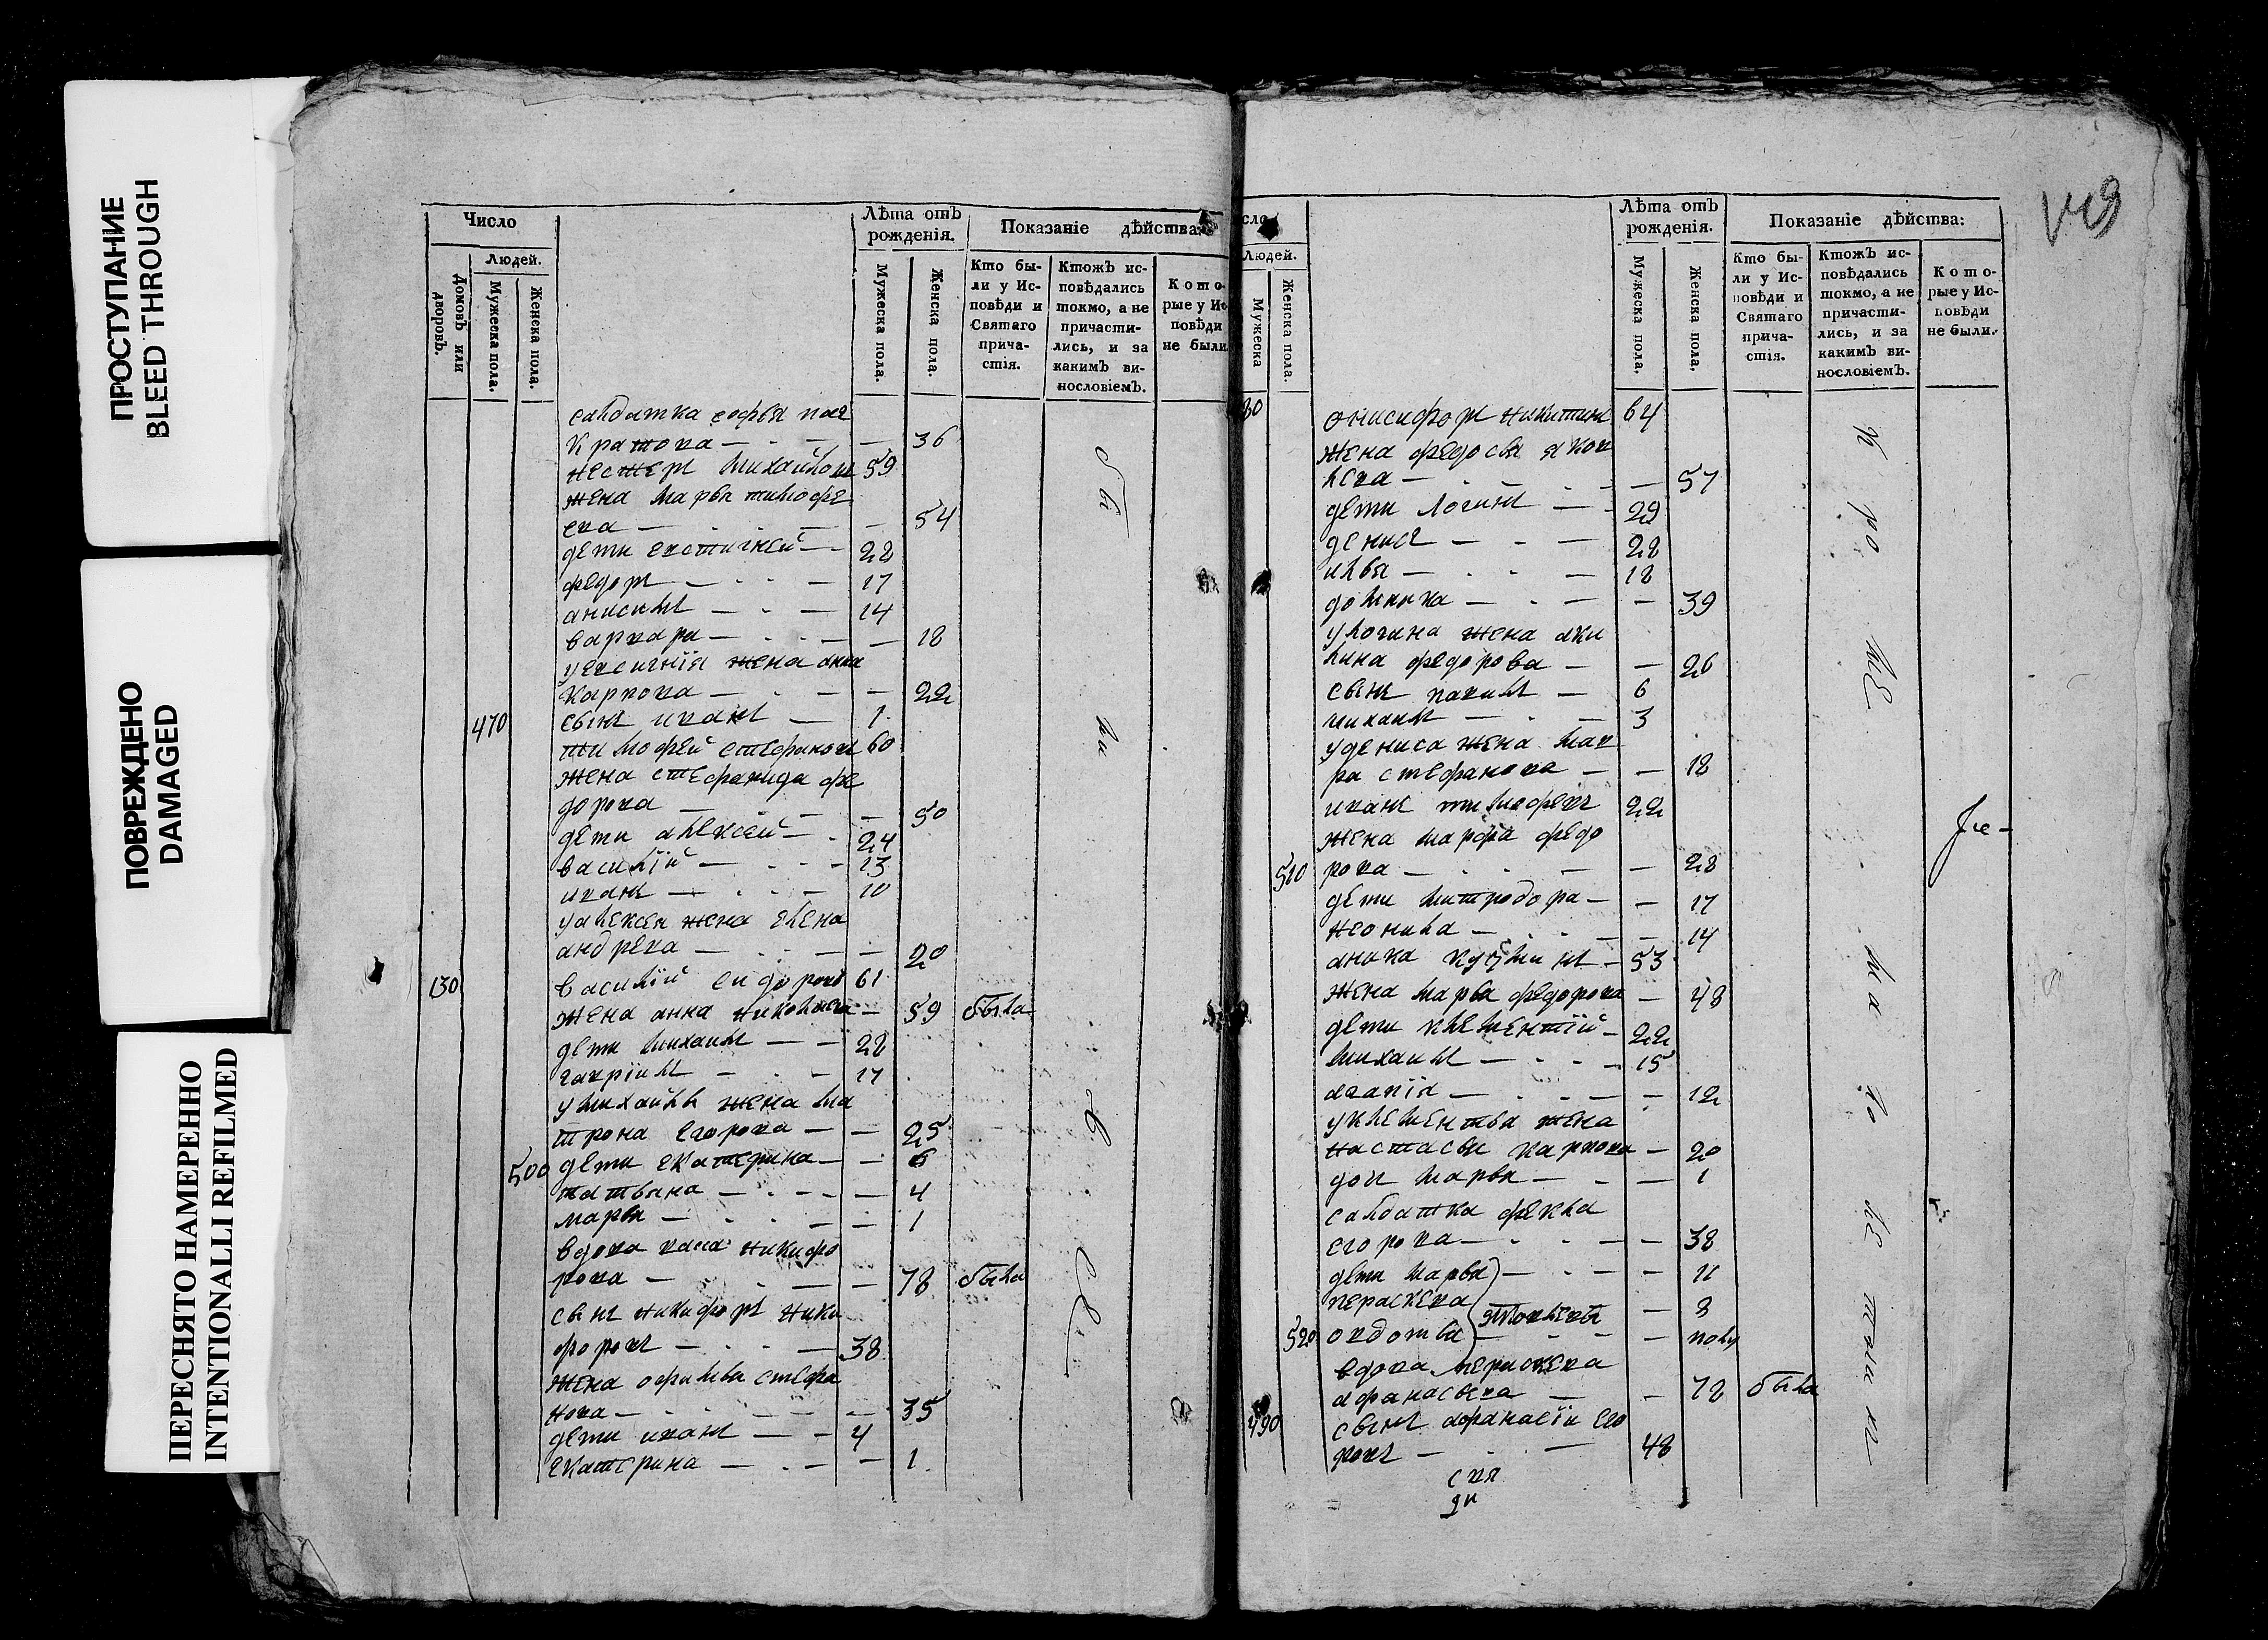 ПРОСТУПАНИЕ
BLEED THROUGH
ПОВРЕЖДЕНО
DAMAGED
ПЕРЕСНЯТО НАМЕРЕННО
INTENTIONALLI REFILMED
Число
Людей.
Домовъ или дворовъ.
Мужеска пола.
Женска пола.
Лѣта отъ рожденія.
Мужеска пола.
Женска пола.
Показаніе дѣйства
Кто были у Исповѣди и Святаго причастія.
Ктожъ исповѣдались токмо, а не причастились, и за какимъ винословіемъ.
Которые у Исповѣди не были
салдатка софья пан
кратова — 36
нестеръ михайловъ 59
жена марья тимофе
ева — 54
дети евстигней — 22
федоръ — 17
анисимъ — 14
варвара — 18
жена анна
карпова — 22
470 сынъ иванъ — 1
тимофей стефановъ 60
жена стефанида фе
дорова — 50
дети алексей — 24
василїй — 13
иванъ — 10
у алексея жена елена
андрева — 20
130 василїй сидоровъ 61
жена анна николаева — 59 была
дети михаилъ — 28
гаврїилъ — 17
у михайлы жена ма
трона егорова — 25
500 дети екатерина — 6
татьяна — 4
марья — 1
вдова никифо
рова — 78 была
сынъ никифоръ ники
форовъ — 38
жена офимья стефа
нова — 35
дети иванъ — 4
екатерина — 1
бы
ли
все
149
Людей.
Мужеска
Женска пола.
Лѣта отъ рожденія.
Мужеска пола.
Женска пола.
Показаніе дѣйства:
Кто были у Исповѣди и Святаго причастія.
Ктожъ исповѣдались токмо, а не причастились, и за какимъ винословіемъ.
Которые у Исповѣди не были.
80 онисифоръ никитинъ 64
жена федосья яков
лева — 57
дети логинъ — 29
денисъ — 28
илья — 18
домника — 39
у логина жена аку
лина федорова — 26
сынъ вавилъ — 6
михаилъ — 3
у дениса жена мав
ра стефанова — 18
иванъ тимофевъ 22
жена марфа федо
510 рова — 28
дети митродора — 17
неонила — 14
жена марья федорова — 48
дети клементїй — 22
михаилъ — 15
агапїя — 12
у клементья жена
настасья карпова — 20
доч марья — 1
салдатка фекла
егорова — 38
дети марья — 11
параскева — 8
520 овдотья — полу
вдова параскева
афанасьева — 72 была
490 сынъ афанасїй его
ровъ — 48
кро
ме
ма
ло
ле
тни
хъ